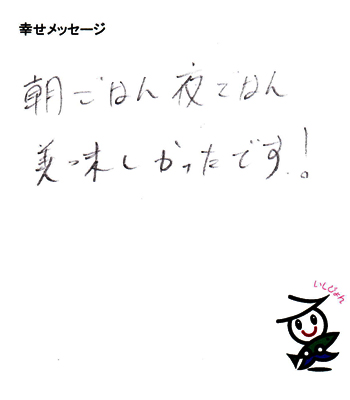 幸せメッセージ
朝ごはん夜ごはん
美味しかったです!
いしぴょん